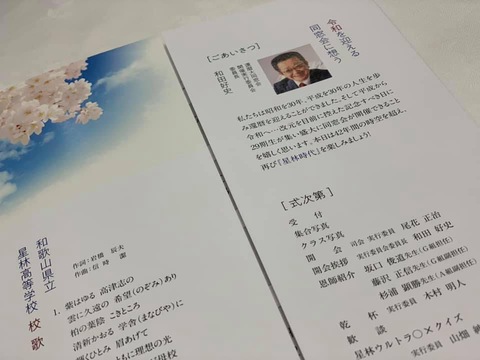 令和を迎える
同窓会に想う
[ごあいさつ]
還暦大同窓会
開催実行委員会
委員長
和田好史
私たちは昭和を30年、平成を30年の人生を歩
み還暦を迎えることができました。そして平成から
令和へ…改元を目前に控えた記念すべき日に
29期生が集い盛大に同窓会が開催できること
を嬉しく思います。本日は42年間の時空を超え、
再び『星林時代』を楽しみましょう!
[式次第]
受付
集合写真
クラス写真
開会 司会 実行委員 尾花 正治
開会挨拶 実行委員会委員長 和田 好史
恩師紹介 坂口 俊道先生(G組担任)
藤沢 正信先生(G組担任)
杉浦 顕勝先生(A組副担任)
乾杯 実行委員 木村 明人
歓談
星林ウルトラ〇×クイズ
実行委員 山畑
和歌山県立
星林高等学校 校歌
作詞:岩橋 辰夫
作曲:信時 潔
1. 紫はゆる 高津志の
雲に久遠の 希望(のぞみ)あり
柏の葉陰 こきところ
清新かおる 学舎(まなびや)に
眉あげて
ともに理想の光
母校